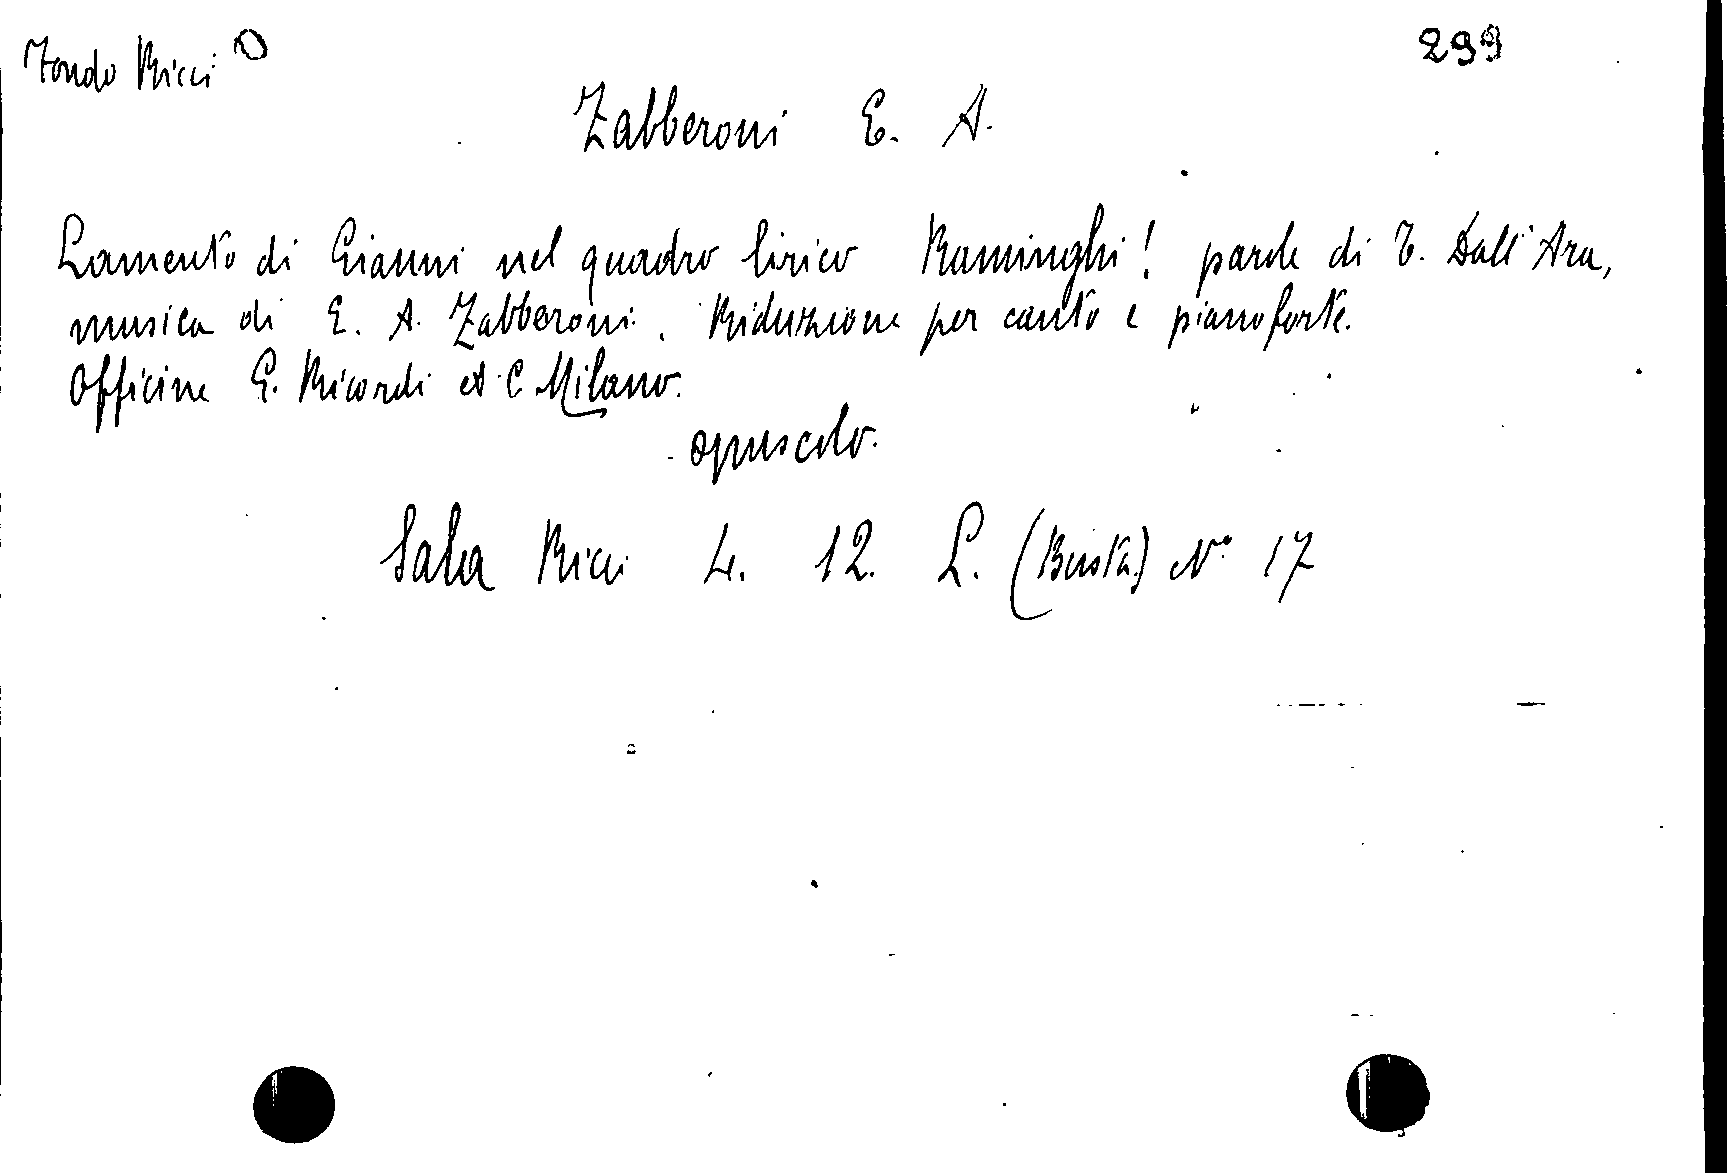 Fondo Ricci O
299
Zabberoni E. A.
Lamento di Gianni nel quadro lirico Raminghi! parole di T. Dall'Ara,
musica di E. A. Zabberoni. Riduzione per canto e pianoforte.
Officine G. Ricordi et C Milano.
opuscolo.
Sala Ricci 4. 12. L. (Busta) N° 17